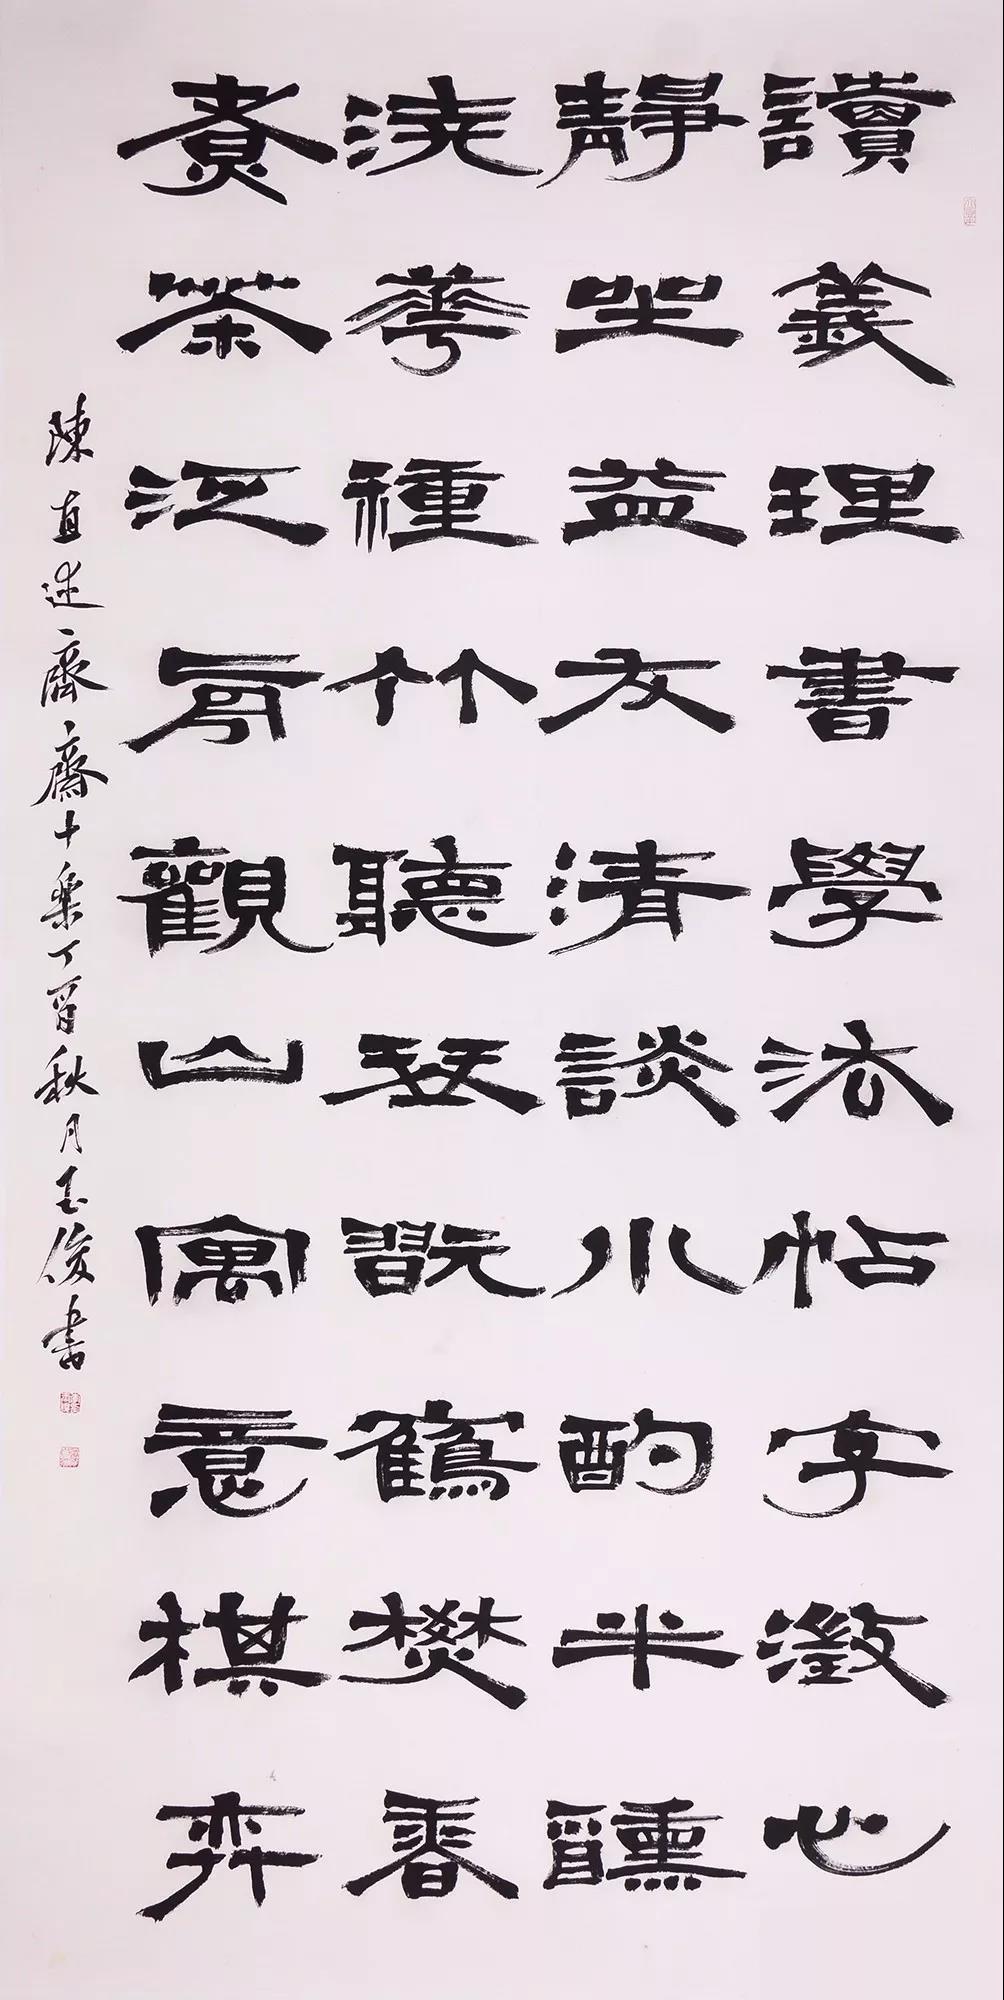 讀義理書學法帖字澂心
靜坐益友清談小酌半醺
澆華種竹聽琴翫鶴燓香
煮茶泛舟觀山寓意棋弈
陳直述齊齋十樂丁酉秋月玉俊書